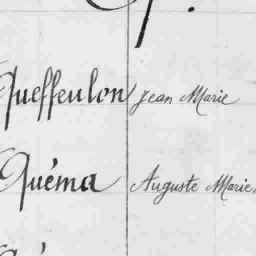 Queffeulon Jean Marie
Quéma Auguste Marie